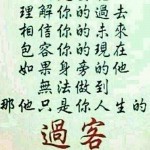 理解你的過去
相信你的未來
包容你的現在
如果身旁的他
無法做到
那他只是你人生的
過客